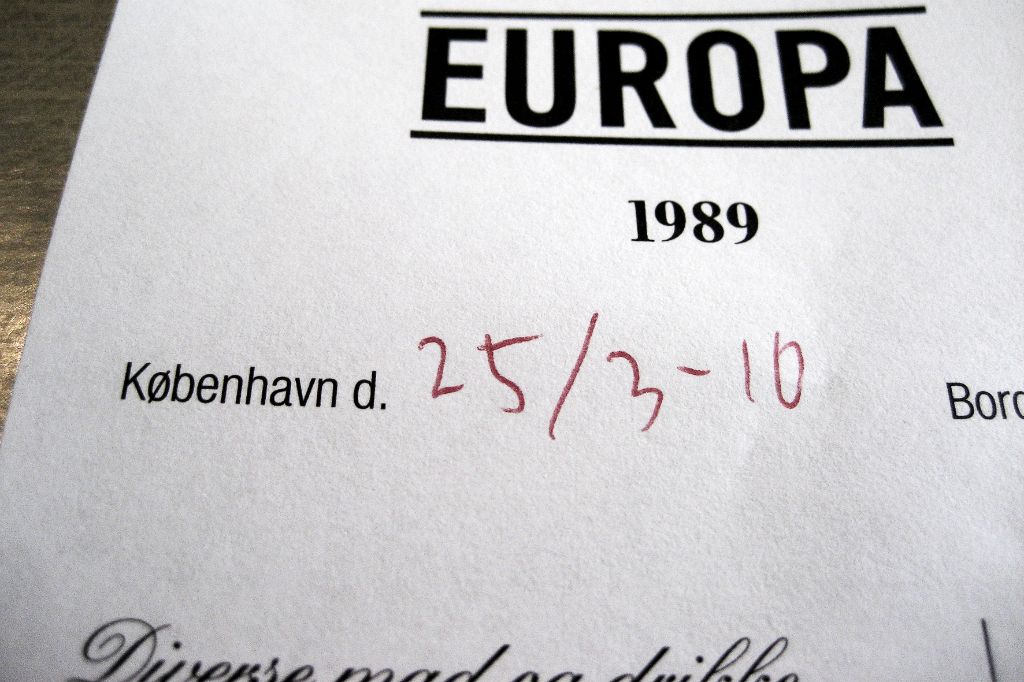 EUROPA
1989
København d. 25/3-10
Diverse mad og drikke